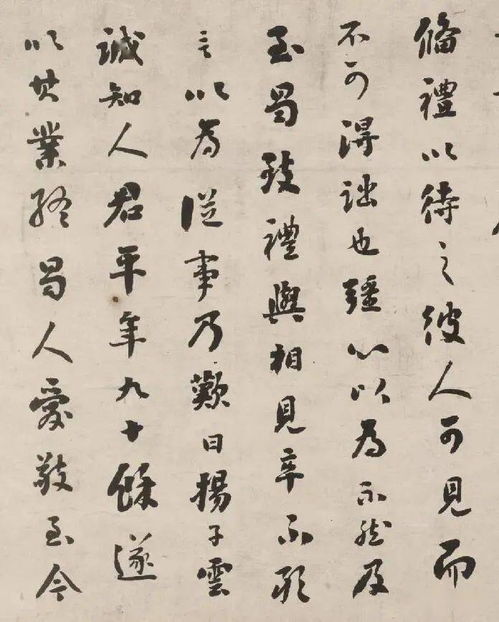 備禮以待之彼人可見而
不可得詘也彊心以為不然及
至蜀致禮與相見卒不敢
言以為從事乃歎曰揚子雲
誠知人君平年九十餘遂
以其業終蜀人愛敬至今